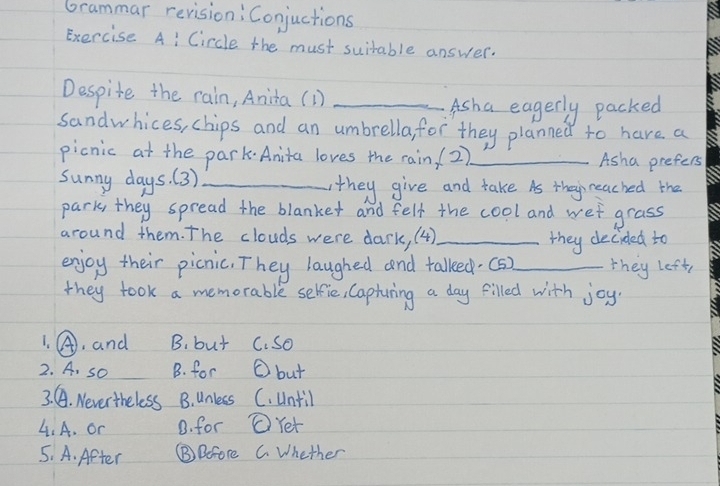 Grammar revision: Conjuctions
Exercise A: Circle the must suitable answer.
Despite the rain, Anita (1) __________ Asha eagerly packed
Sandwhices, chips and an umbrella, for they planned to have a
picnic at the park. Anita loves the rain, (2) __________ Asha prefers
Sunny days. (3) __________, they give and take As they reached the
park, they spread the blanket and felt the cool and wet grass
around them. The clouds were dark, (4) __________ they decided to
enjoy their picnic. They laughed and talked. (5) __________ they left,
they took a memorable selfie, Capturing a day filled with joy.
1. A. and B. but C. so
2. A. so B. for C but
3. A. Nevertheless B. Unless C. Until
4. A. or B. for C Yet
5. A. After B Before C. Whether